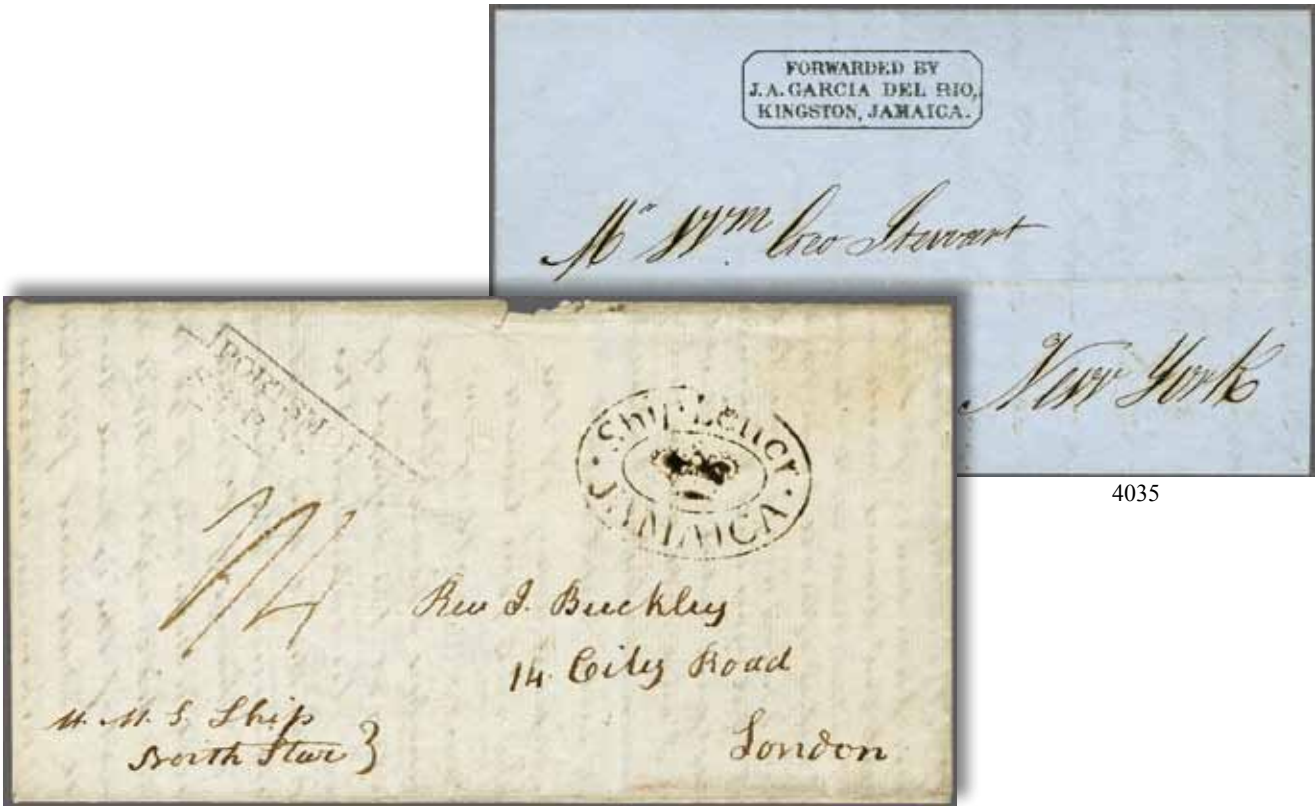 FORWARDED BY
J. A. GARCIA DEL RIO,
KINGSTON, JAMAICA.
Mr Wm Geo Stewart
New York
4035
PORTSMO
Ship Letter
JAMAICA
Rev J. Buckley
14 City Road
London
H. M. S. Ship
North Star